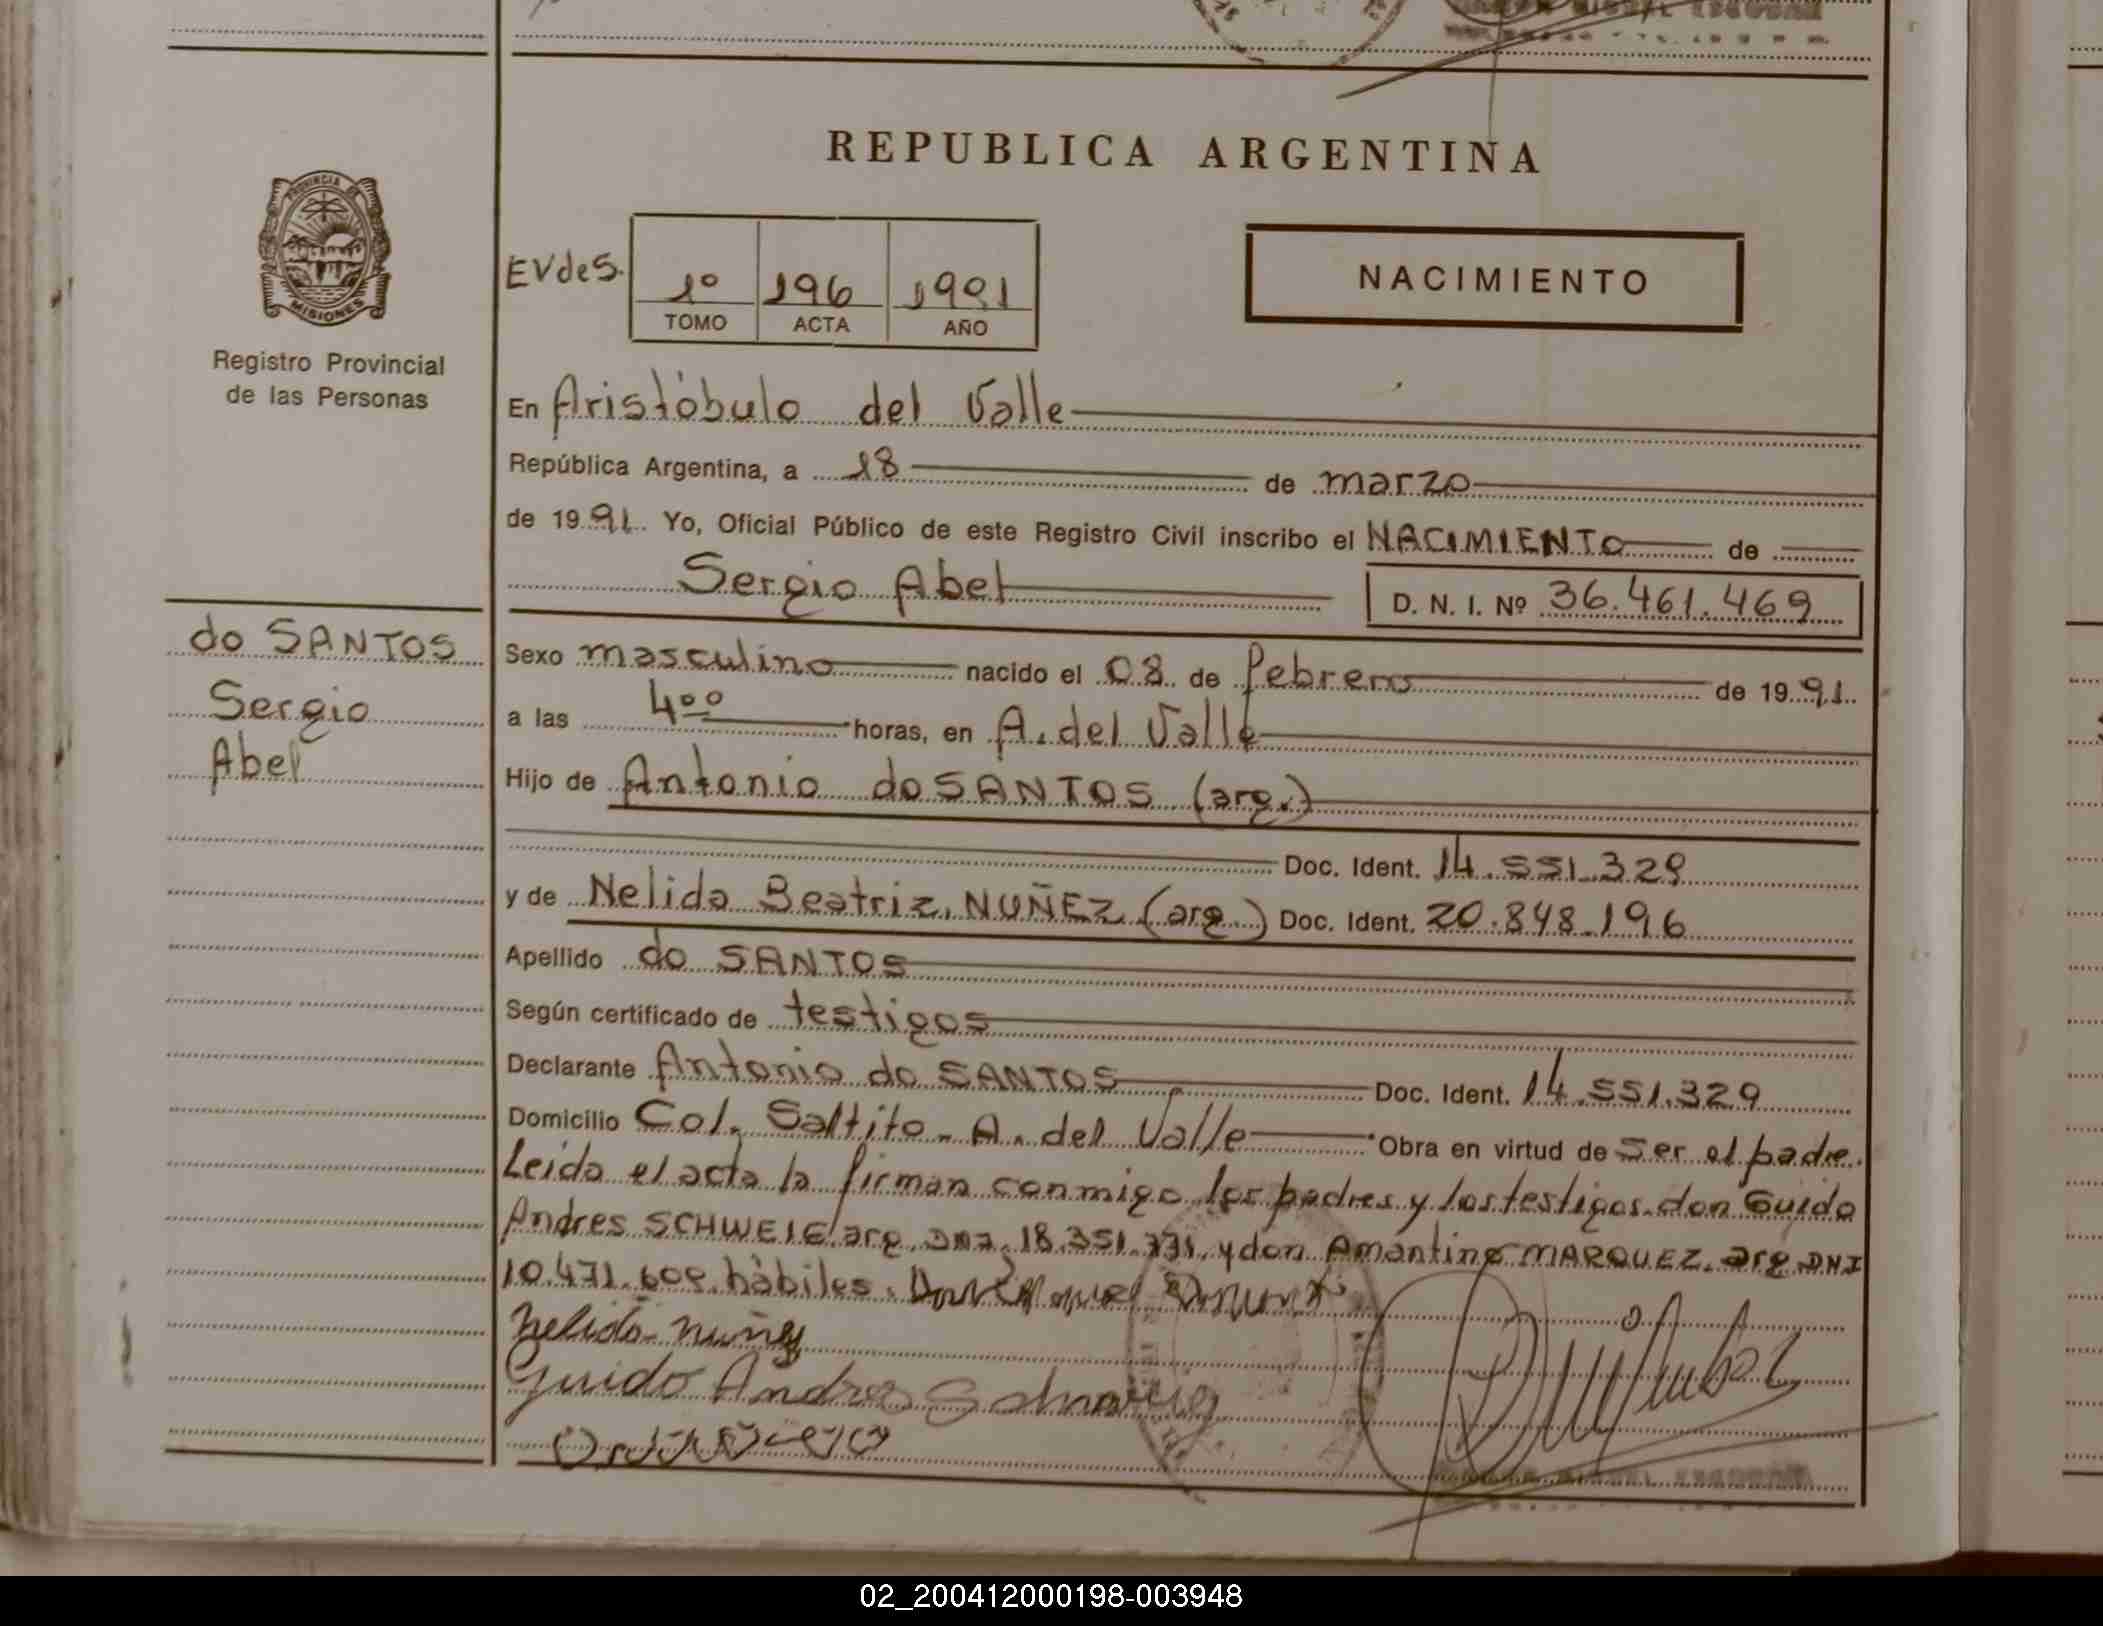 REPUBLICA ARGENTINA
PROVINCIA DE
MISIONES
Registro Provincial
de las Personas
EVdeS.
1º 196 1991
TOMO ACTA AÑO
NACIMIENTO
En Aristóbulo del Valle
República Argentina, a 18 de marzo
de 1991. Yo, Oficial Público de este Registro Civil inscribo el NACIMIENTO de
Sergio Abel
D. N. I. Nº 36.461.469
do SANTOS
Sergio
Abel
Sexo masculino nacido el 08 de febrero de 1991.
a las 4 00 horas, en A. del Valle
Hijo de Antonio do SANTOS (arg.)
Doc. Ident. 14.551.329
y de Nelida Beatriz NUÑEZ (arg.) Doc. Ident. 20.848.196
Apellido do SANTOS
Según certificado de testigos
Declarante Antonio do SANTOS Doc. Ident. 14.551.329
Domicilio Col. Saltito - A. del Valle Obra en virtud de ser el padre.
Leida el acta la firman conmigo los padres y los testigos don Guido
Andres arg. DNI. 18.351. y don Amantino MARQUEZ. arg DNI
10.471. hábiles.
Nelida nuñez
Guido Andres
02_200412000198-003948